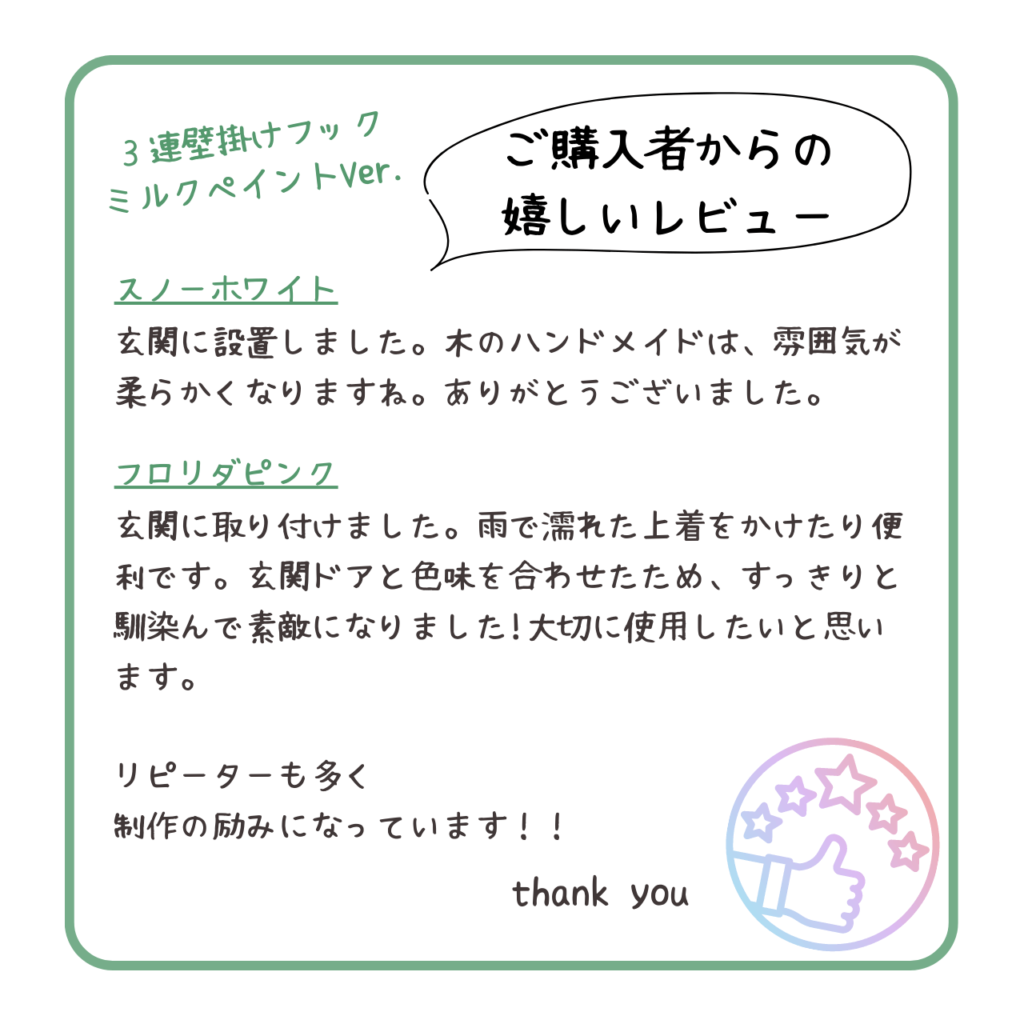 3連壁掛けフック
ミルクペイントVer.
ご購入者からの
嬉しいレビュー
スノーホワイト
玄関に設置しました。木のハンドメイドは、雰囲気が
柔らかくなりますね。ありがとうございました。
フロリダピンク
玄関に取り付けました。雨で濡れた上着をかけたり便
利です。玄関ドアと色味を合わせたため、すっきりと
馴染んで素敵になりました!大切に使用したいと思い
ます。
リピーターも多く
制作の励みになっています！！
thank you